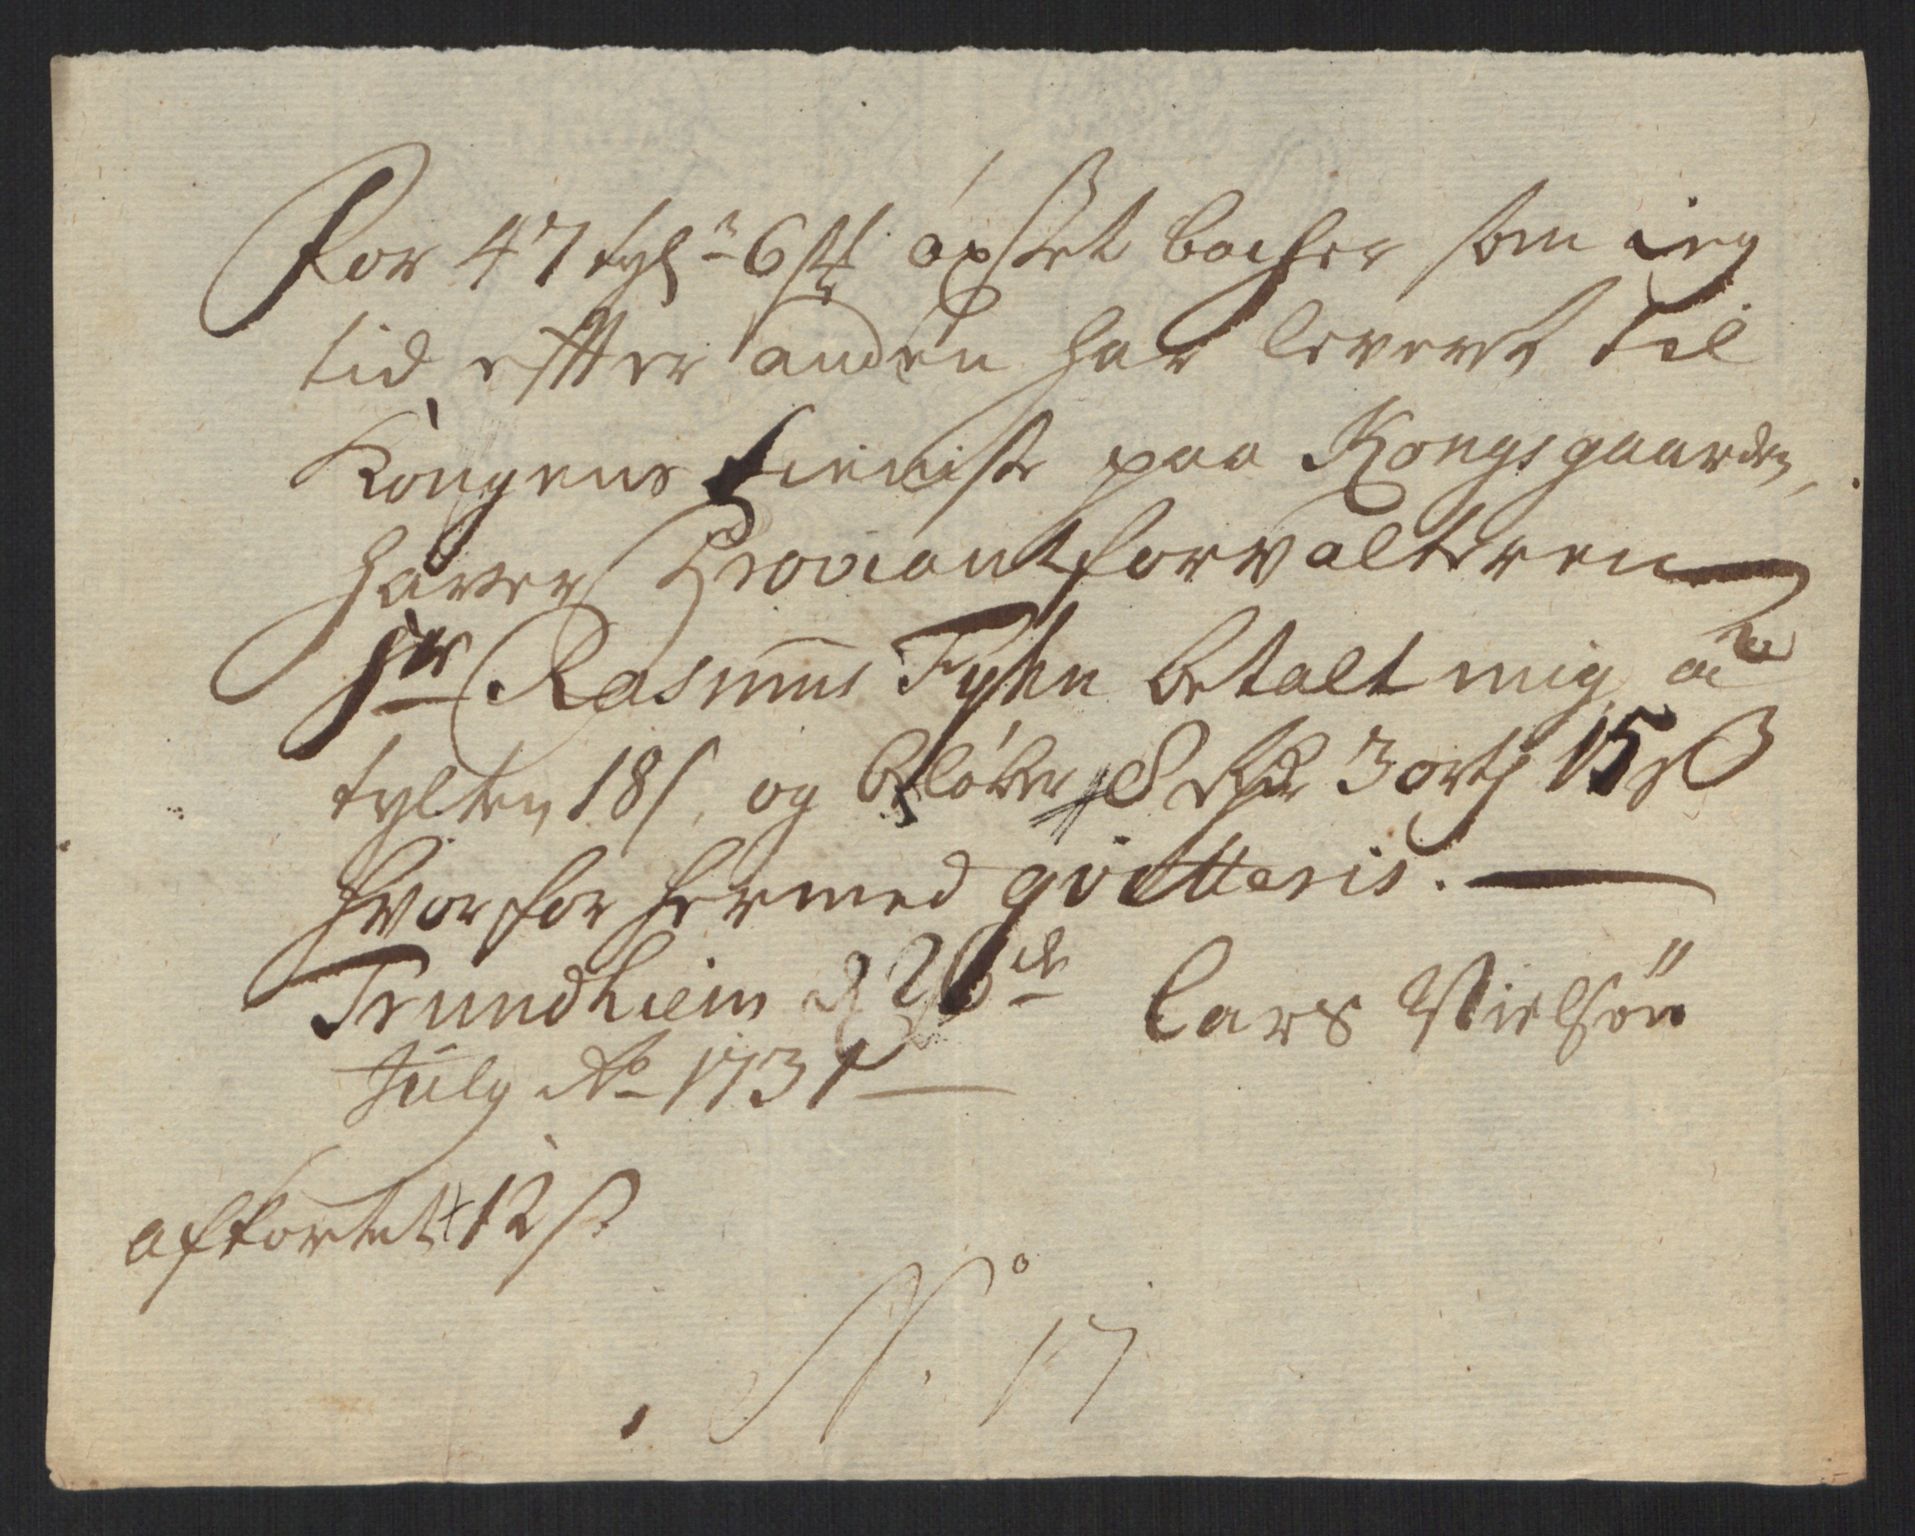 For 47 tylt 6 st opset bacher som ieg
tid effter anden har levert til
Kongens tieniste paa Kongsgaarden,
haver Proviantforvalteren
hr Rasmus Fyhn betalt mig a
tylten 18 s, og beløber 8 rdr 3 ort 15 s
hvorfor hermed qvitteris.
Trundhiem d 26de Lars Nielsøn
July Ao 1731
afkortet 12 s
No. 17